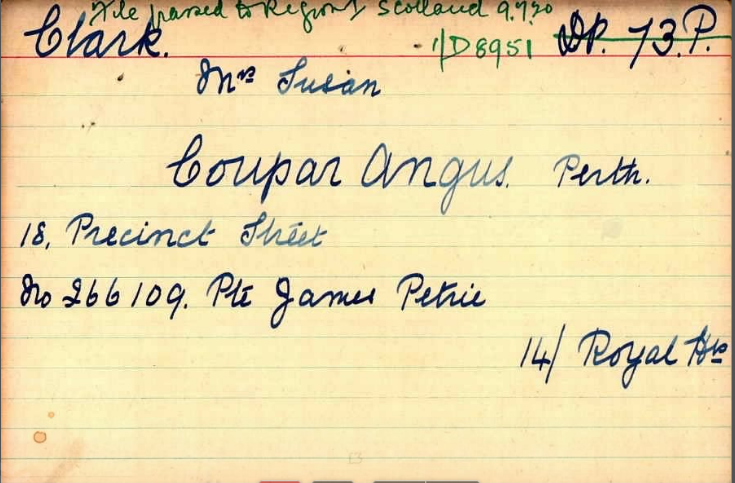 File passed to Region Scotland 9.7.20
Clark. 1/D8951 DP. 73.P.
Mrs Susan
Coupar Angus. Perth.
18, Precinct Street
No 266109. Pte James Petrie
14/ Royal Hrs